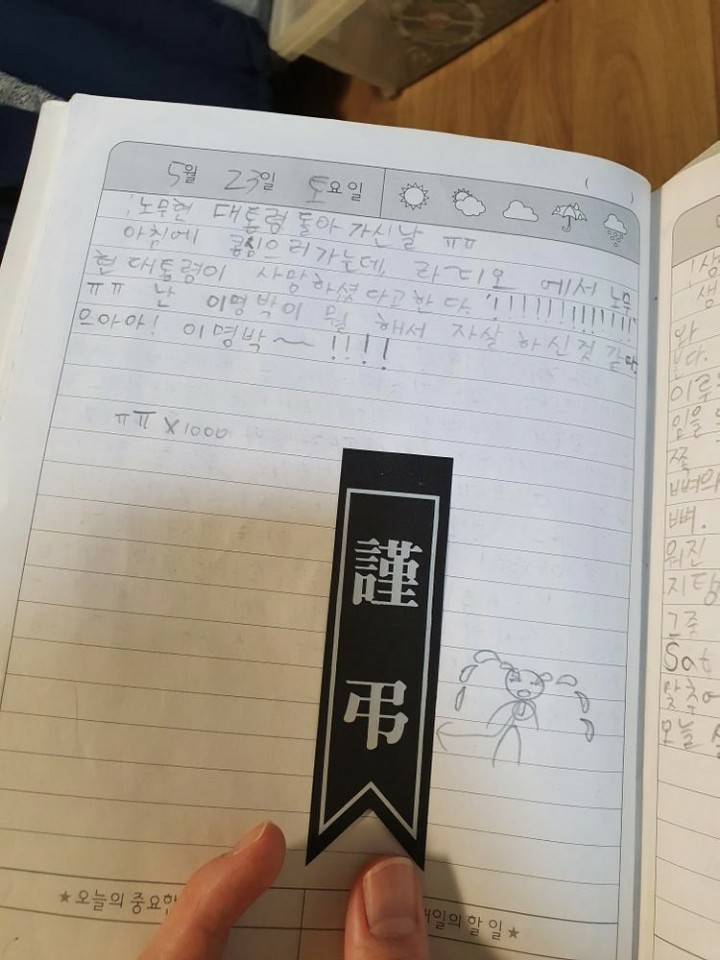 5월 23일 토요일
( )
!노무현 대통령 돌아가신날 ㅠㅠ
아침에 콩심으러가는데, 라디오에서 노무
현대통령이 사망하셨다고한다.!!!!!!!!!!!!!
ㅠㅠ 난 이명박이 뭘 해서 자살하신것 같다.
으아아! 이명박~ !!!!
ㅠㅠ X1000
謹
弔
★오늘의 중요한
일의 할 일★
!
생
와
이루
일을
쪽
뼈와
뼈.
워진
지탱
그중
Sat
맞추어
오늘